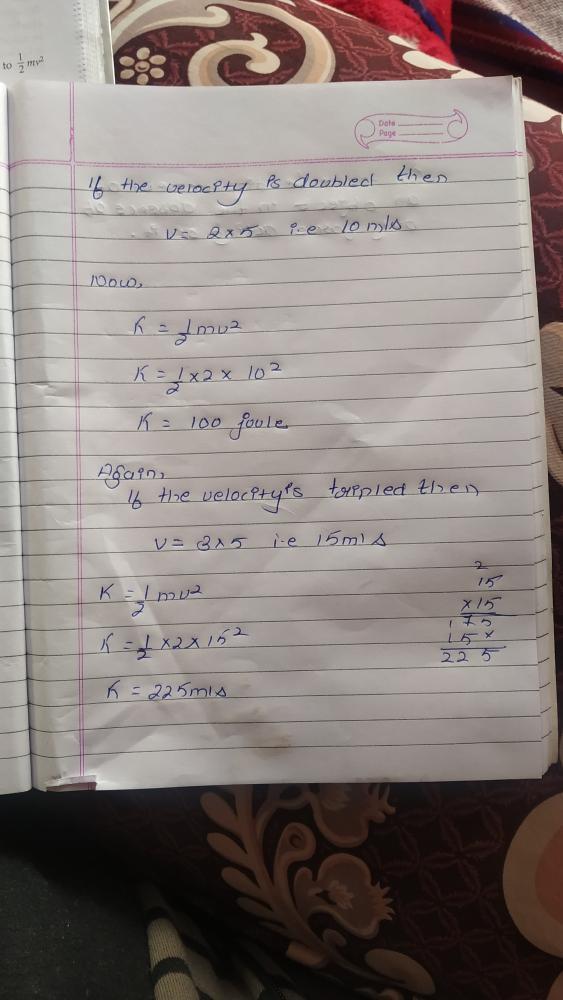 to 1/2 mv²
Date
Page
If the velocity is doubled then
V = 2×5 i.e 10 m/s
Now,
K = 1/2 mv²
K = 1/2 × 2 × 10²
K = 100 joule
Again,
If the velocity is tripled then
V = 3×5 i.e 15 m/s
K = 1/2 mv²
K = 1/2 × 2 × 15²
K = 225 m/s
2
15
×15
175
15×
225